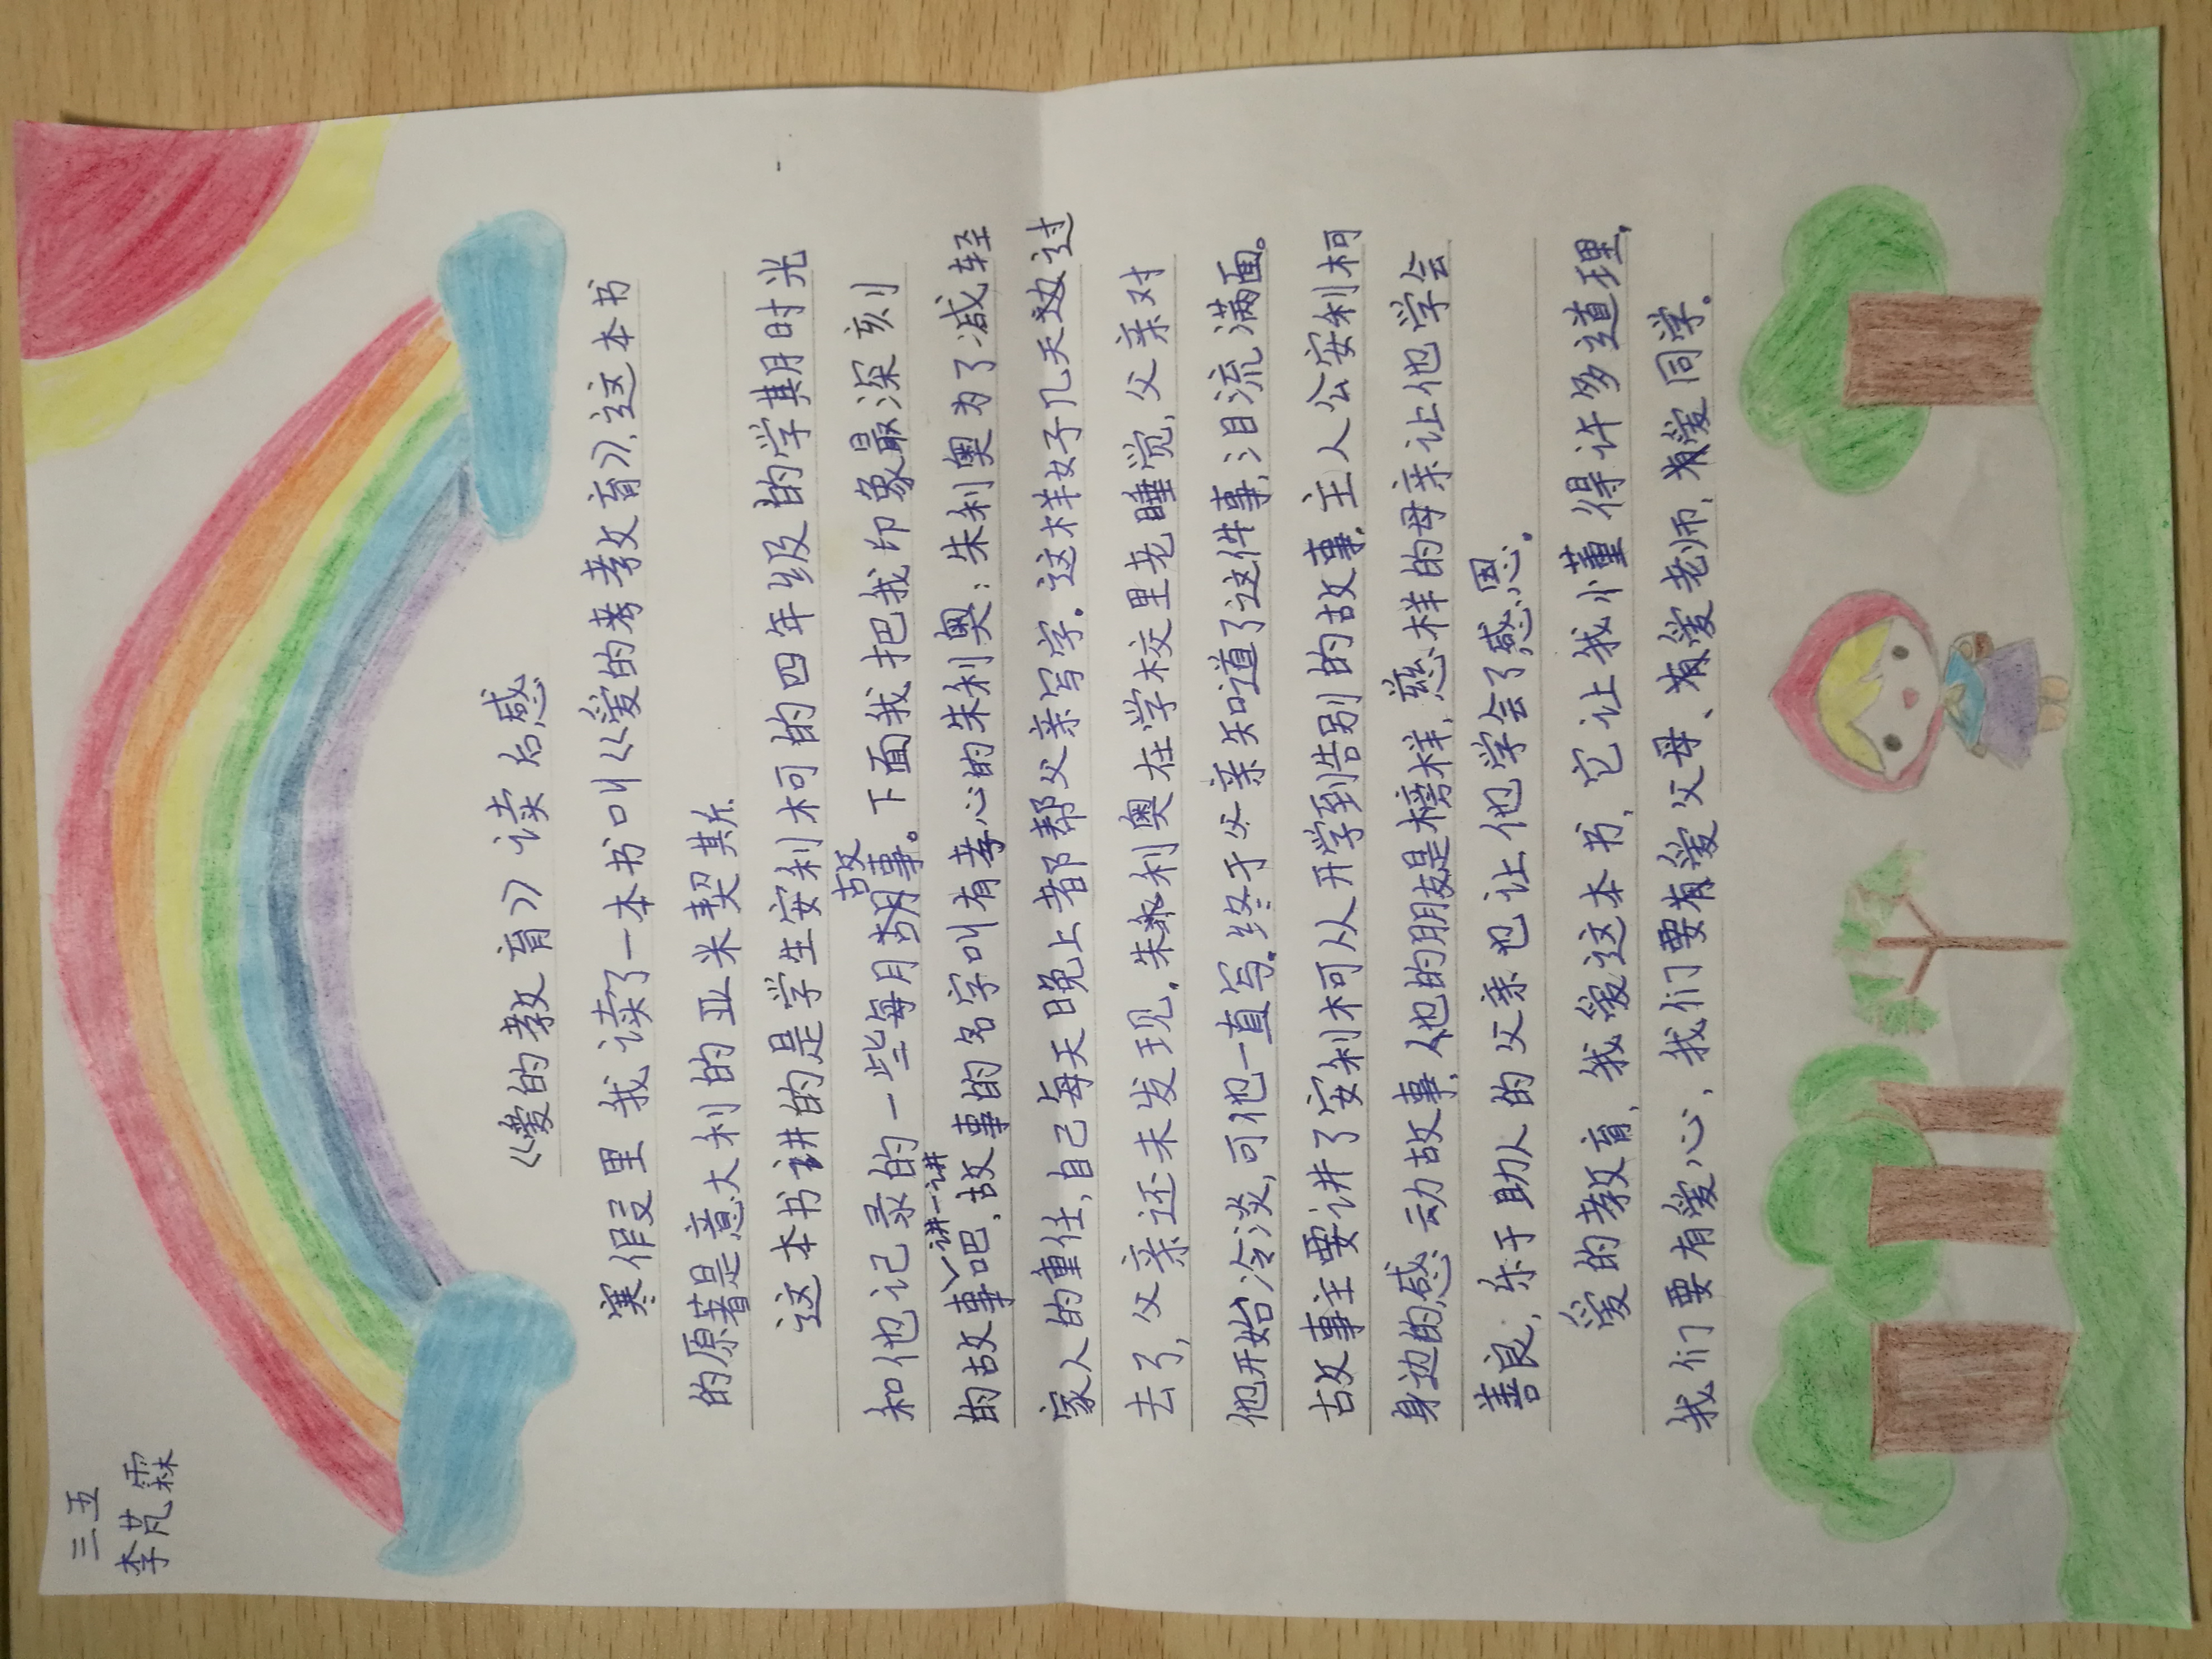 三五
李芃霖
《爱的教育》读后感
寒假里我读了一本书叫《爱的教育》，这本书
的原著是意大利的亚米契斯.
这本书讲的是学生安利柯的四年级的学期时光
和他记录的一些每月故事。下面我把我印象最深刻
的故事讲一讲吧，故事的名字叫有孝心的朱利奥：朱利奥为了减轻
家人的重任，自己每天晚上都帮父亲写字.这样好几天过
去了，父亲还未发现.朱利奥在学校里老睡觉，父亲对
他开始冷淡，可他一直写.终于父亲知道了这件事，泪流满面。
故事主要讲了安利柯从开学到告别的故事.主人公安利柯
身边的感动故事，他的朋友是榜样，慈样的母亲让他学会
善良，乐于助人的父亲也让他学会了感恩.
爱的教育，我爱这本书，它让我懂得许多道理，
我们要有爱心，我们要爱父母、爱老师，爱同学.